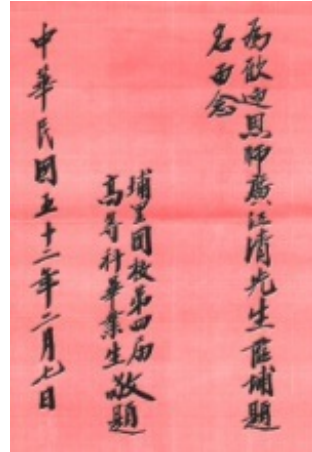 為歡迎恩師廣江清先生蒞埔題
名留念
埔里國校第四屆
高等科畢業生敬題
中華民國五十二年二月七日